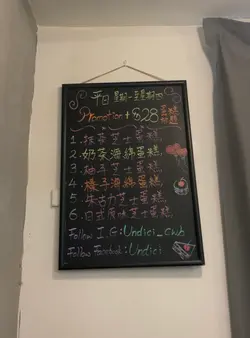 平日 星期一至星期四
Promotion + $28 蛋糕
1. 抹茶芝士蛋糕
2. 奶茶海綿蛋糕
3. 柚子芝士蛋糕
4. 橙子海綿蛋糕
5. 朱古力芝士蛋糕
6. 日式原味芝士蛋糕
Follow I.G: Undici_cwb
Follow Facebook: Undici